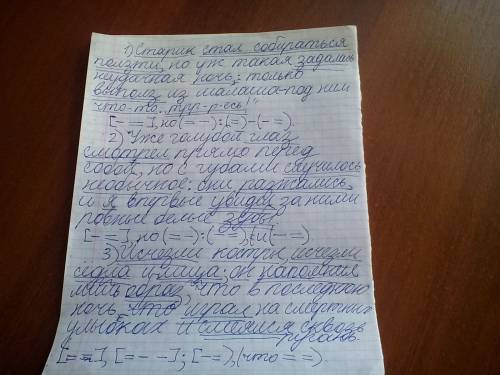 1) Старик стал собираться
ползти, но уж такая задалась
неудачная ночь: только
выполз из шалаша-под ним
что-то "трр-р-есь!"
[- =], но (= -) : (=) - (- =).
2) Уже голубой глаз
смотрел прямо перед
собой, но с губами случилось
необычное: они разжались,
и я впервые увидел за ними
ровные белые зубы
[- =], но (= -) : (- =), (и (- =)
3) Исчезли костры, исчезли
седла и лица; он напомнил
мить образ, что в последнюю
ночь, играл на смертных
улыбках и смеялся сквозь
ругань.
[= -], [= - -]; [- =], (что = =).